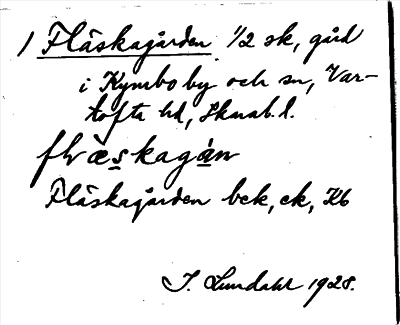 1 Fläskagården 1/2 sk, gård
i Kymbo by och sn, Var-
tofta hd, Skarab. l.
Fläskagården bck, ek, Kb
I. Lundahl 1928.